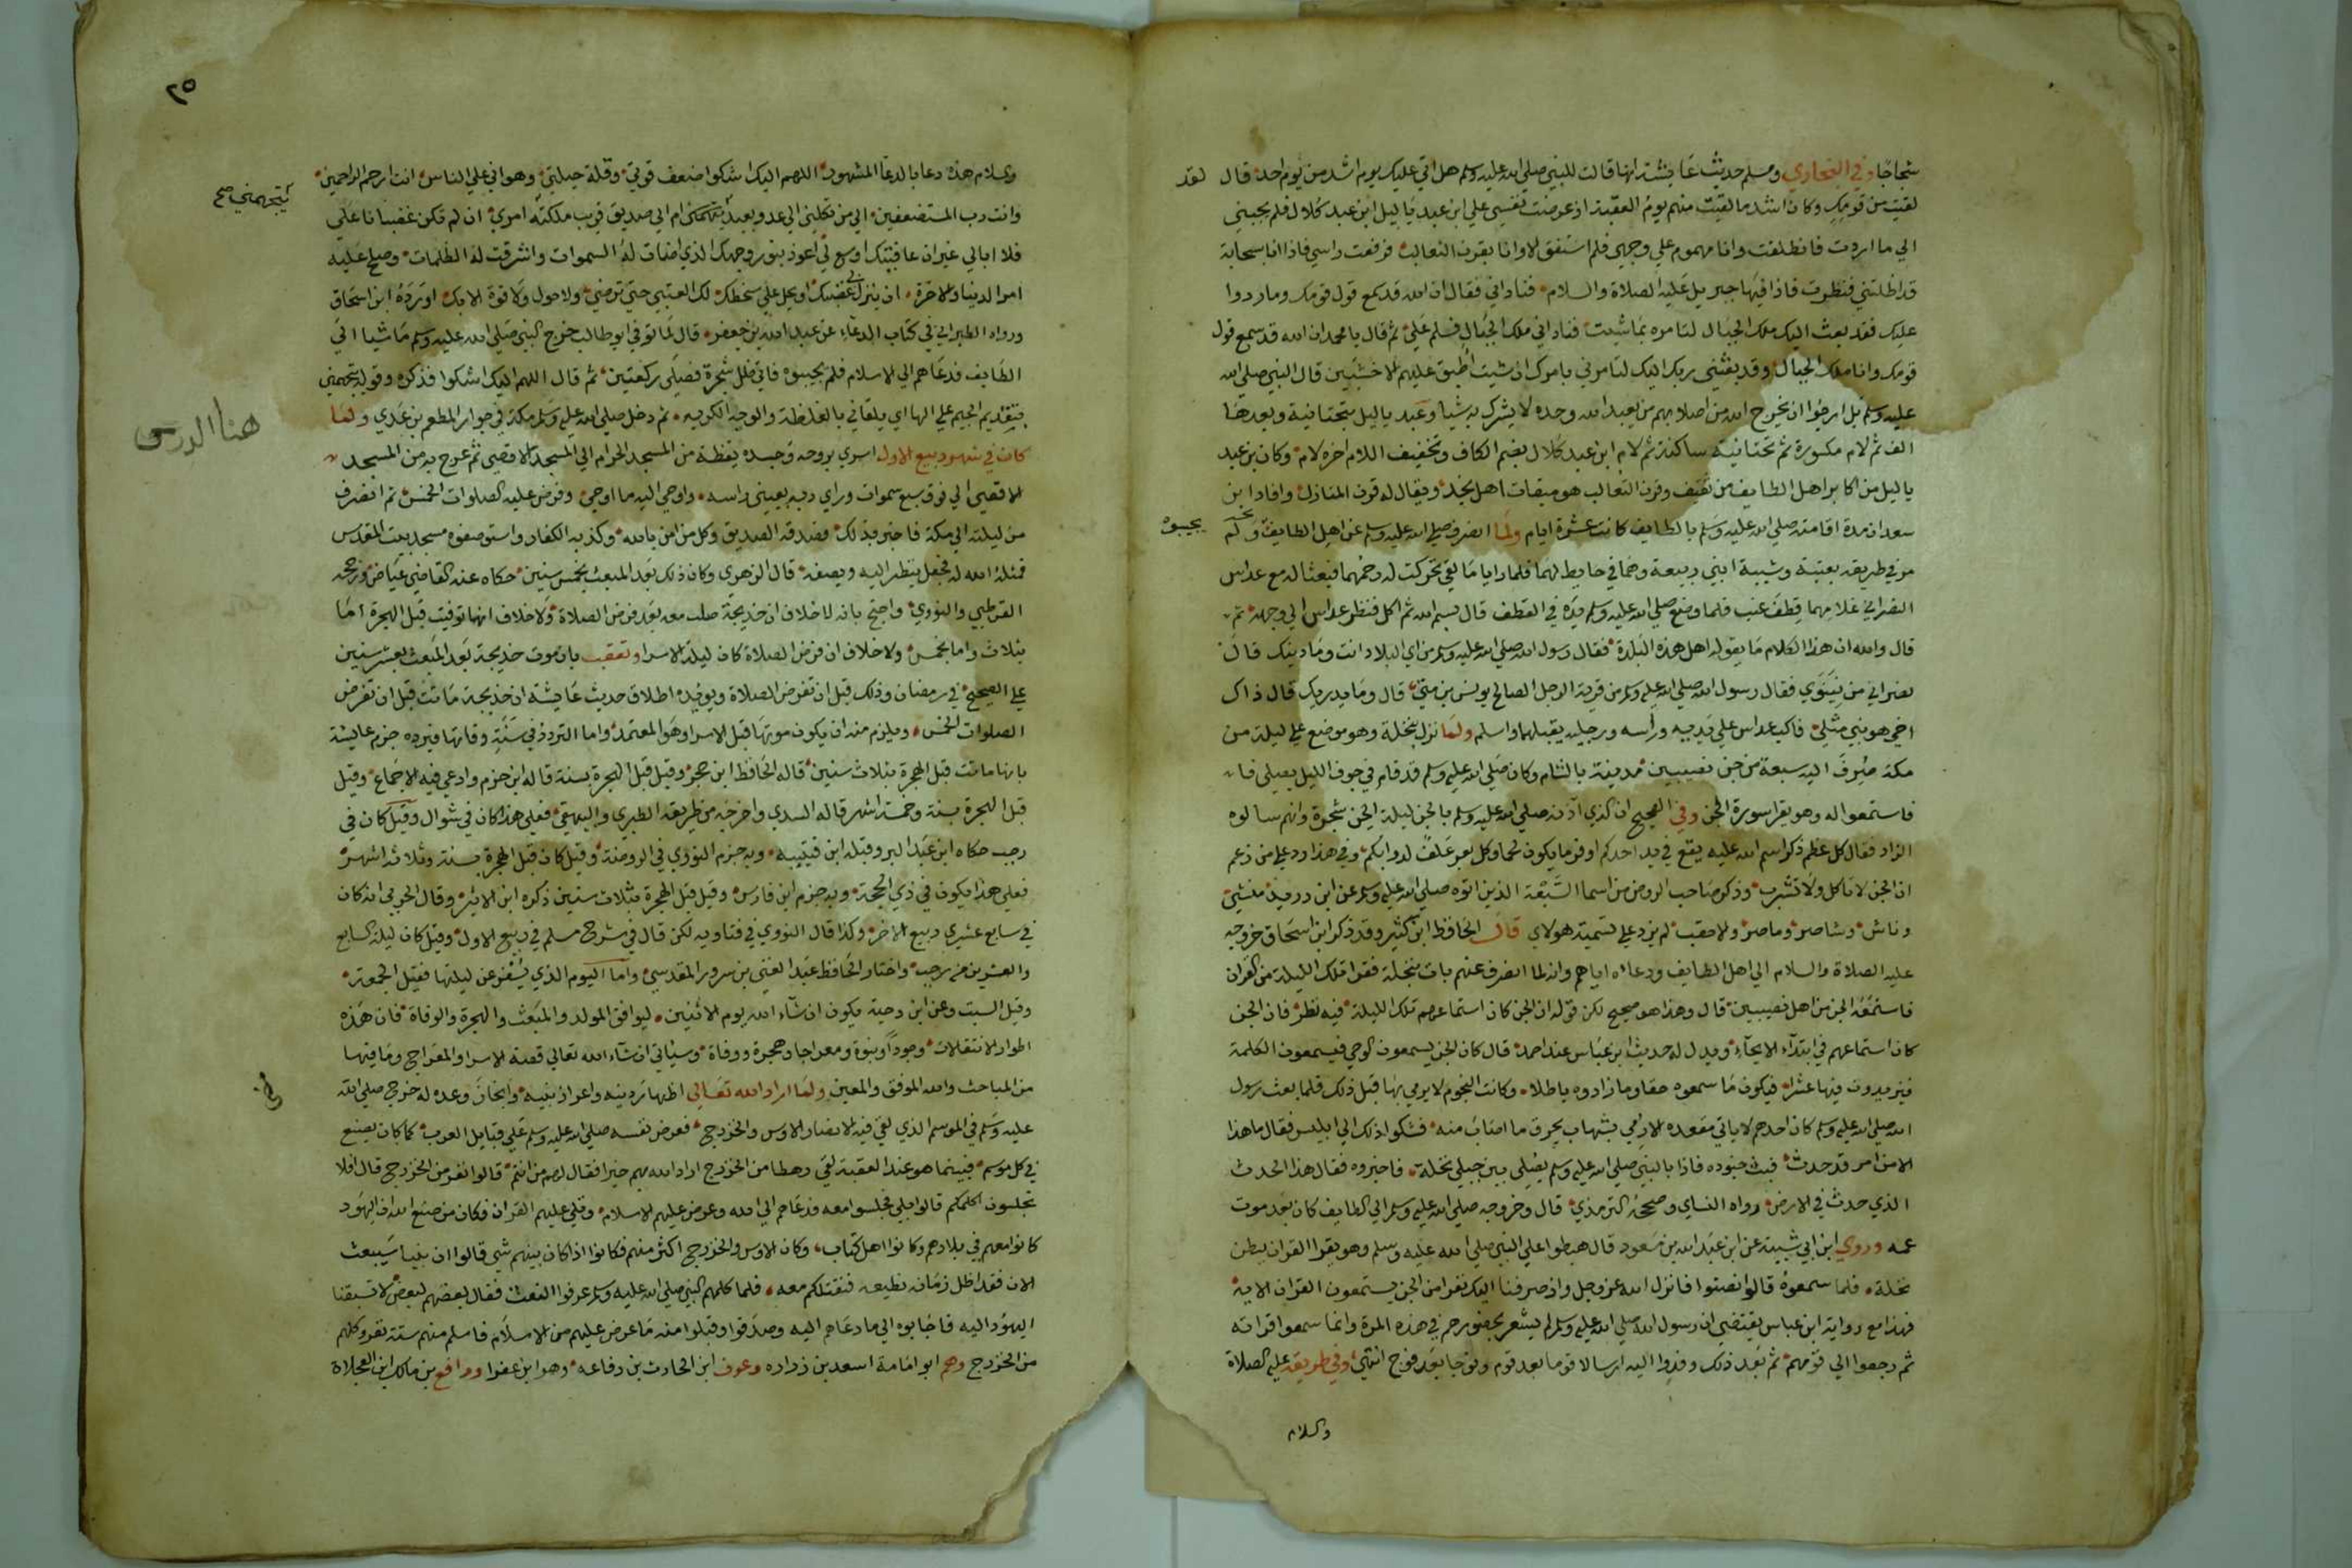 شجاجا وفي البخاري ومسلم حديث عايشة انها قالت للنبي صلى الله عليه وسلم هل اتي عليك يوم اشد من يوم احد قال لقد
لقيت من قومك وكان اشد ما لقيت منهم يوم العقبة اذ عرضت نفسي علي ابن عبد ياليل ابن عبد كلال فلم يجبني
الي ما اردت فانطلقت وانا مهموم علي وجهي فلم استفق الا وانا بقرن الثعالب فرفعت راسي فاذا انا بسحابة
قد اظلتني فنظرت فاذا فيها جبريل عليه الصلاة والسلام فناداني فقال ان الله قد سمع قول قومك وما ردوا
عليك فقد بعث اليك ملك الجبال لتامره بما شيت فناداني ملك الجبال فسلم علي ثم قال يا محمد ان الله قد سمع قول
قومك وانا ملك الجبال وقد بعثني ربك اليك لتامرني بامرك ان شيت اطبق عليهم الاخشبين قال النبي صلي الله
عليه وسلم بل ارجوا ان يخرج الله من اصلابهم من يعبد الله وحده لا يشرك به شيا وعبد ياليل بتحتانية وبعدها
الف ثم لام مكسورة ثم تحتانية ساكنة ثم لام ابن عبد كلال بضم الكاف وتخفيف اللام اخره لام وكان بن عبد
ياليل من اكابر اهل الطايف من ثقيف وقرن الثعالب هو ميقات اهل نجد ويقال له قرن المنازل وافاد ابن
سعد ان مدة اقامته صلي الله عليه وسلم بالطايف كانت عشرة ايام ولما انصرف صلي الله عليه وسلم عن اهل الطايف ولم يجيبوه
مر في طريقه بعتبة وشيبة ابني ربيعة وهما في حايط لهما فلما رايا ما لقي تحركت له رحمهما فبعثا له مع عداس
النصراني غلامهما قطف عنب فلما وضع صلي الله عليه وسلم يده في القطف قال بسم الله ثم اكل فنظر عداس الي وجهه ثم
قال والله ان هذا الكلام ما يقوله اهل هذه البلدة فقال رسول الله صلي الله عليه وسلم من اي البلاد انت وما دينك قال
نصراني من نينوي فقال رسول الله صلي الله عليه وسلم من قرية الرجل الصالح يونس بن متي قال وما يدريك قال ذاك
اخي هو نبي مثلي فاكب عداس علي يديه وراسه ورجليه يقبلها واسلم ولما نزل نخلة وهو موضع علي ليلة من
مكة صرف اليه سبعة من جن نصيبين مدينة بالشام وكان صلي الله عليه وسلم قد قام في جوف الليل يصلي
فاستمعوا له وهو يقرا سورة الجن وفي الصحيح ان الذي آذنه صلي الله عليه وسلم بالجن ليلة الجن شجرة وانهم سالوه
الزاد فقال كل عظم ذكر اسم الله عليه يقع في يد احدكم اوفر ما يكون لحما وكل بعر علف لدوابكم وفي هذا رد علي من زعم
ان الجن لا تاكل ولا تشرب وذكر صاحب الروض من اسما السبعة الذين اتوه صلي الله عليه وسلم عن ابن دريد منشي
وناش وشاصر وماصر والاحقب لم يزد علي تسمية هولاي قال الحافظ ابن كثير وقد ذكر ابن اسحاق خروجه
عليه الصلاة والسلام الي اهل الطايف ودعاه اياهم وانه لما انصرف عنهم بات بنخلة فقرا تلك الليلة من القران
فاستمعه الجن من اهل نصيبين قال وهذا هو صحيح لكن قوله ان الجن كان استماعهم تلك الليلة فيه نظر فان الجن
كان استماعهم في ابتداء الايحاء ويدل له حديث ابن عباس عند احمد قال كان الجن يسمعون الوحي فيسمعون الكلمة
فيزيدون فيها عشرا فيكون ما سمعوه حقا وما زادوه باطلا وكانت النجوم لا يرمي بها قبل ذلك فلما بعث رسول
الله صلي الله عليه وسلم كان احدهم لا ياتي مقعده الا رمي بشهاب يحرق ما اصاب منه فشكوا ذلك الي ابليس فقال ما هذا
الا من امر قد حدث فبث جنوده فاذا بالنبي صلي الله عليه وسلم يصلي بين جبلي نخلة فاخبروه فقال هذا الحدث
الذي حدث في الارض رواه النساي وصححه الترمذي قال وخروجه صلي الله عليه وسلم الي الطايف كان بعد موت
عمه وروي ابن ابي شيبة عن عبد الله بن مسعود قال هبطوا علي النبي صلي الله عليه وسلم وهو يقرا القران ببطن
نخلة فلما سمعوه قالوا انصتوا فانزل الله عز وجل واذ صرفنا اليك نفرا من الجن يستمعون القران الاية
فهذا مع رواية ابن عباس يقتضي ان رسول الله صلي الله عليه وسلم لم يشعر بحضورهم في هذه المرة وانما سمعوا قراته
ثم رجعوا الي قومهم ثم بعد ذلك وفدوا اليه ارسالا قوما بعد قوم وفوجا بعد فوج انتهي وفي طريقه عليه الصلاة
والسلام
٢٥
والسلام هذه دعا بالدعا المشهور اللهم اليك اشكوا ضعف قوتي وقلة حيلتي وهواني علي الناس انت ارحم الراحمين
وانت رب المستضعفين الي من تكلني الي عدو بعيد يتجهمني ام الي صديق قريب ملكته امري ان لم تكن غضبانا علي
يتجهمني صح
فلا ابالي غير ان عافيتك اوسع لي اعوذ بنور وجهك الذي اضات له السموات واشرقت له الظلمات وصلح عليه
امر الدنيا والاخرة ان ينزل بي غضبك او يحل علي سخطك لك العتبي حتي ترضي ولا حول ولا قوة الا بك اورده ابن اسحاق
ورواه الطبراني في كتاب الدعاء عن عبد الله بن جعفر قال لما توفي ابو طالب خرج النبي صلي الله عليه وسلم ماشيا الي
الطايف فدعاهم الي الاسلام فلم يجيبوه فاتي ظل شجرة فصلي ركعتين ثم قال اللهم اليك اشكوا فذكره وقوله يتجهمني
بتقديم الجيم علي الها اي يلقاني بالغلظة والوجه الكريه ثم دخل صلي الله عليه وسلم مكة في جوار المطعم بن عدي ولما
هنا الدرس
كان في شهر ربيع الاول اسري بروحه وجسده يقظة من المسجد الحرام الي المسجد الاقصي ثم عرج به من المسجد
الاقصي الي فوق سبع سموات وراي ربه بعيني راسه واوحي اليه ما اوحي وفرض عليه الصلوات الخمس ثم انصرف
من ليلته الي مكة فاخبر بذلك فصدقه الصديق وكل من امن بالله وكذبه الكفار واستوصفوه مسجد بيت المقدس
فمثله الله له فجعل ينظر اليه ويصفه قال الزهري وكان ذلك بعد المبعث بخمس سنين حكاه عنه القاضي عياض ورجحه
القرطبي والنووي واحتج بانه لا خلاف ان خديجة صلت معه بعد فرض الصلاة ولا خلاف انها توفيت قبل الهجرة اما
بثلاث واما بخمس ولا خلاف ان فرض الصلاة كان ليلة الاسرا وتعقب بان موت خديجة بعد المبعث بعشر سنين
علي الصحيح في رمضان وذلك قبل ان تفرض الصلاة ويويده اطلاق حديث عايشة ان خديجة ماتت قبل ان تفرض
الصلوات الخمس ويلزم منه ان يكون موتها قبل الاسرا وهو المعتمد واما التردد في سنة وفاتها فيرده جزم عايشة
بانها ماتت قبل الهجرة بثلاث سنين قاله الحافظ ابن حجر وقيل قبل الهجرة بسنة قاله ابن حزم وادعي فيه الاجماع وقيل
قبل الهجرة بسنة وخمسة اشهر قاله السدي واخرجه من طريقه الطبري والبيهقي فعلي هذا كان في شوال وقيل كان في
رجب حكاه ابن عبد البر وقبله ابن قتيبه وبه جزم النووي في الروضة وقيل كان قبل الهجرة بسنة وثلاثة اشهر
فعلي هذا يكون في ذي الحجة وبه جزم ابن فارس وقيل قبل الهجرة بثلاث سنين ذكره ابن الاثير وقال الحربي انه كان
في سابع عشري ربيع الاخر وكذا قال النووي في فتاويه لكن قال في شرح مسلم في ربيع الاول وقيل كان ليلة السابع
والعشرين من رجب واختار الحافظ عبد الغني بن سرور المقدسي واما اليوم الذي يسفر عن ليلتها فقيل الجمعة
وقيل السبت وعن ابن دحية يكون ان شاء الله يوم الاثنين ليوافق المولد والمبعث والهجرة والوفاة فان هذه
اطوار الانتقلات وجودا ونبوة ومعراجا وهجرة ووفاة وسياتي ان شاء الله تعالي قصة الاسرا والمعراج وما فيها
من المباحث والله الموفق والمعين ولما اراد الله تعالي اظهار دينه واعزاز نبيه وانجاز وعده له خرج صلي الله
عليه وسلم في الموسم الذي لقي فيه الانصار الاوس والخزرج فعرض نفسه صلي الله عليه وسلم علي قبايل العرب كما كان يصنع
في كل موسم فبينما هو عند العقبة لقي رهطا من الخزرج اراد الله بهم خيرا فقال لهم من انتم قالوا نفر من الخزرج قال افلا
تجلسون اكلمكم قالوا بلي فجلسوا معه فدعاهم الي الله وعرض عليهم الاسلام وتلي عليهم القران فكان من صنع الله ان اليهود
كانوا معهم في بلادهم وكانوا اهل كتاب وكان الاوس والخزرج اكثر منهم فكانوا اذا كان بينهم شي قالوا ان نبيا سيبعث
الان فقد اظل زمانه نطيعه فنقتلكم معه فلما كلمهم النبي صلي الله عليه وسلم عرفوا النعت فقال بعضهم لبعض لا تسبقنا
اليهود اليه فاجابوه الي ما دعاهم اليه وصدقوا وقبلوا منه ما عرض عليهم من الاسلام فاسلم منهم ستة نفر وكلهم
من الخزرج وهم ابو امامة اسعد بن زراره وعوف ابن الحارث بن رفاعه وهو ابن عفرا ورافع بن مالك ابن العجلان